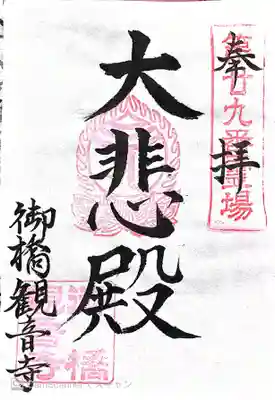 奉拝
第廿九番霊場
大悲殿
御橋観音寺